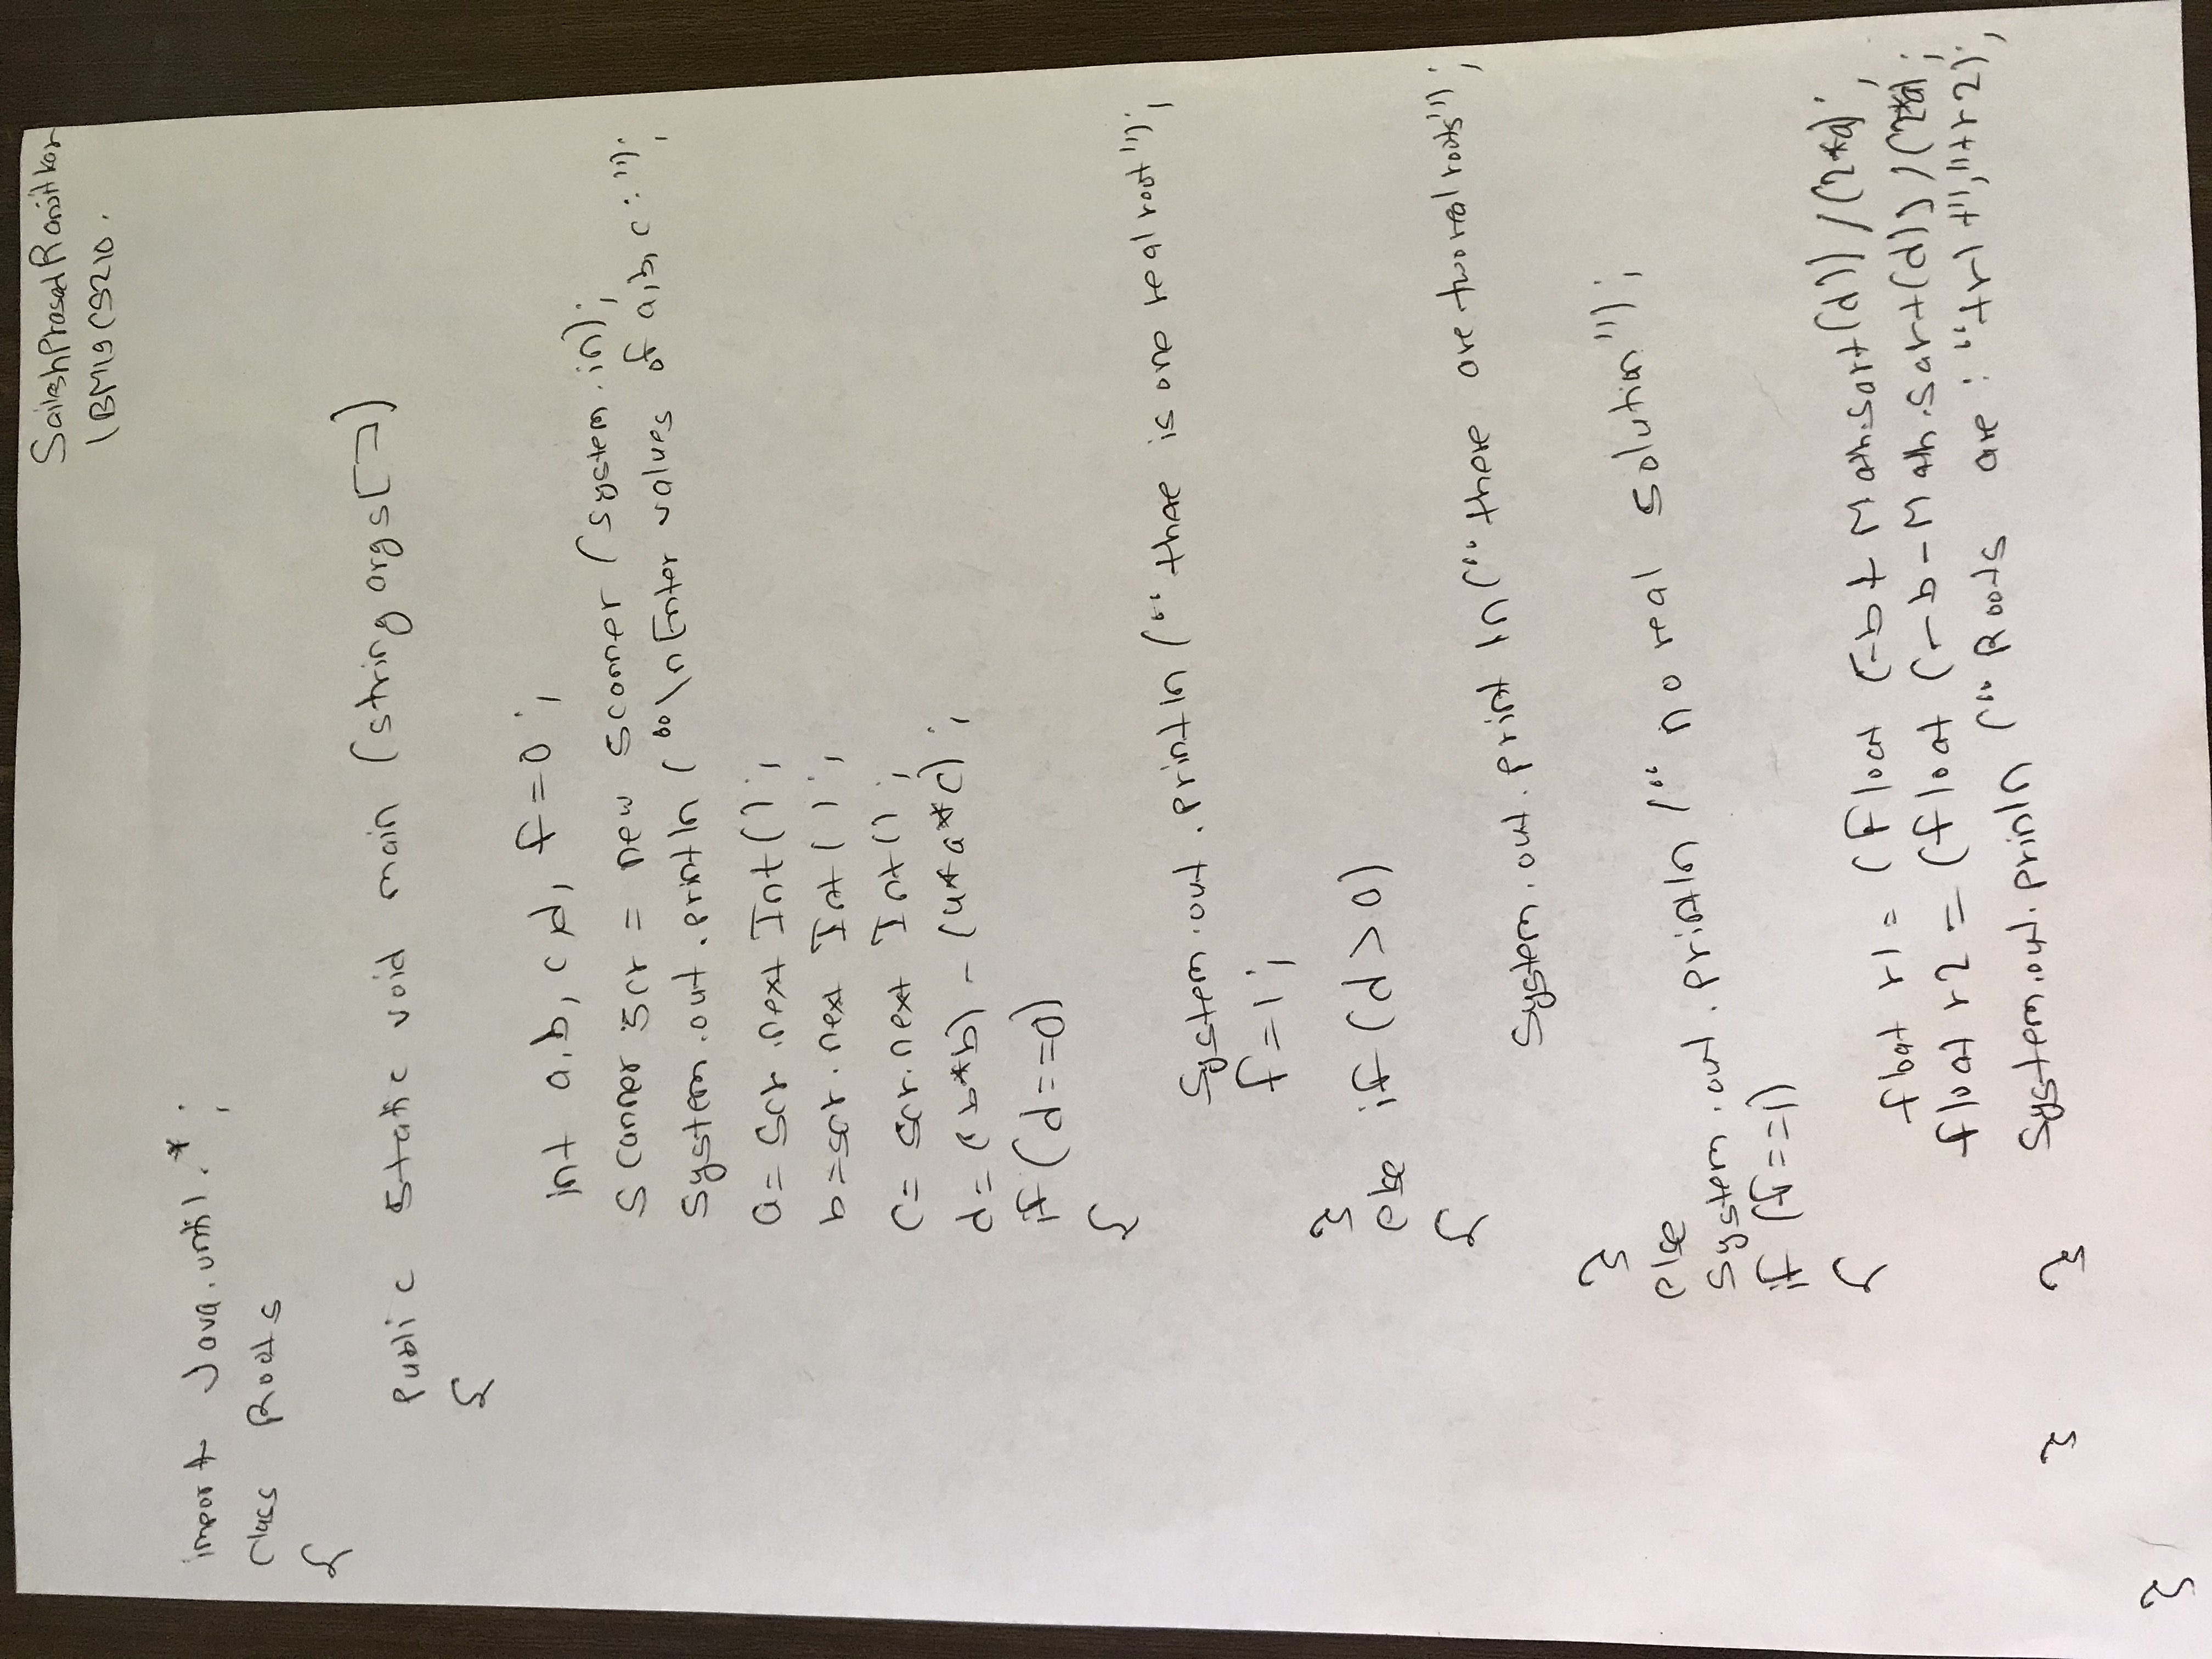 Sailesh Prasad Ranjitkar
1BM19CS210.
import Java.until.*;
class Roots
{
public static void main (string args[])
{
int a,b, c,d, f=0;
scanner scr = new scanner (system.in);
system.out.println ("\nEnter values of a,b,c:");
a= scr.next Int();
b=scr.next Int();
c= scr.next Int();
d= (b*b) - (4*a*c);
if (d==0)
{
System.out.println ("thae is one real root");
f=1;
}
else if (d>0)
{
System.out.print ln("there are two real roots");
}
else
System.out.println ("no real solution");
if (f==1)
{
float r1= (float (-b+Math.sqrt(d))/(2*a);
float r2 = (float (-b-Math.sqrt(d))/(2*a);
System.out.println ("Roots are: "+r1+","+r2);
} }
}